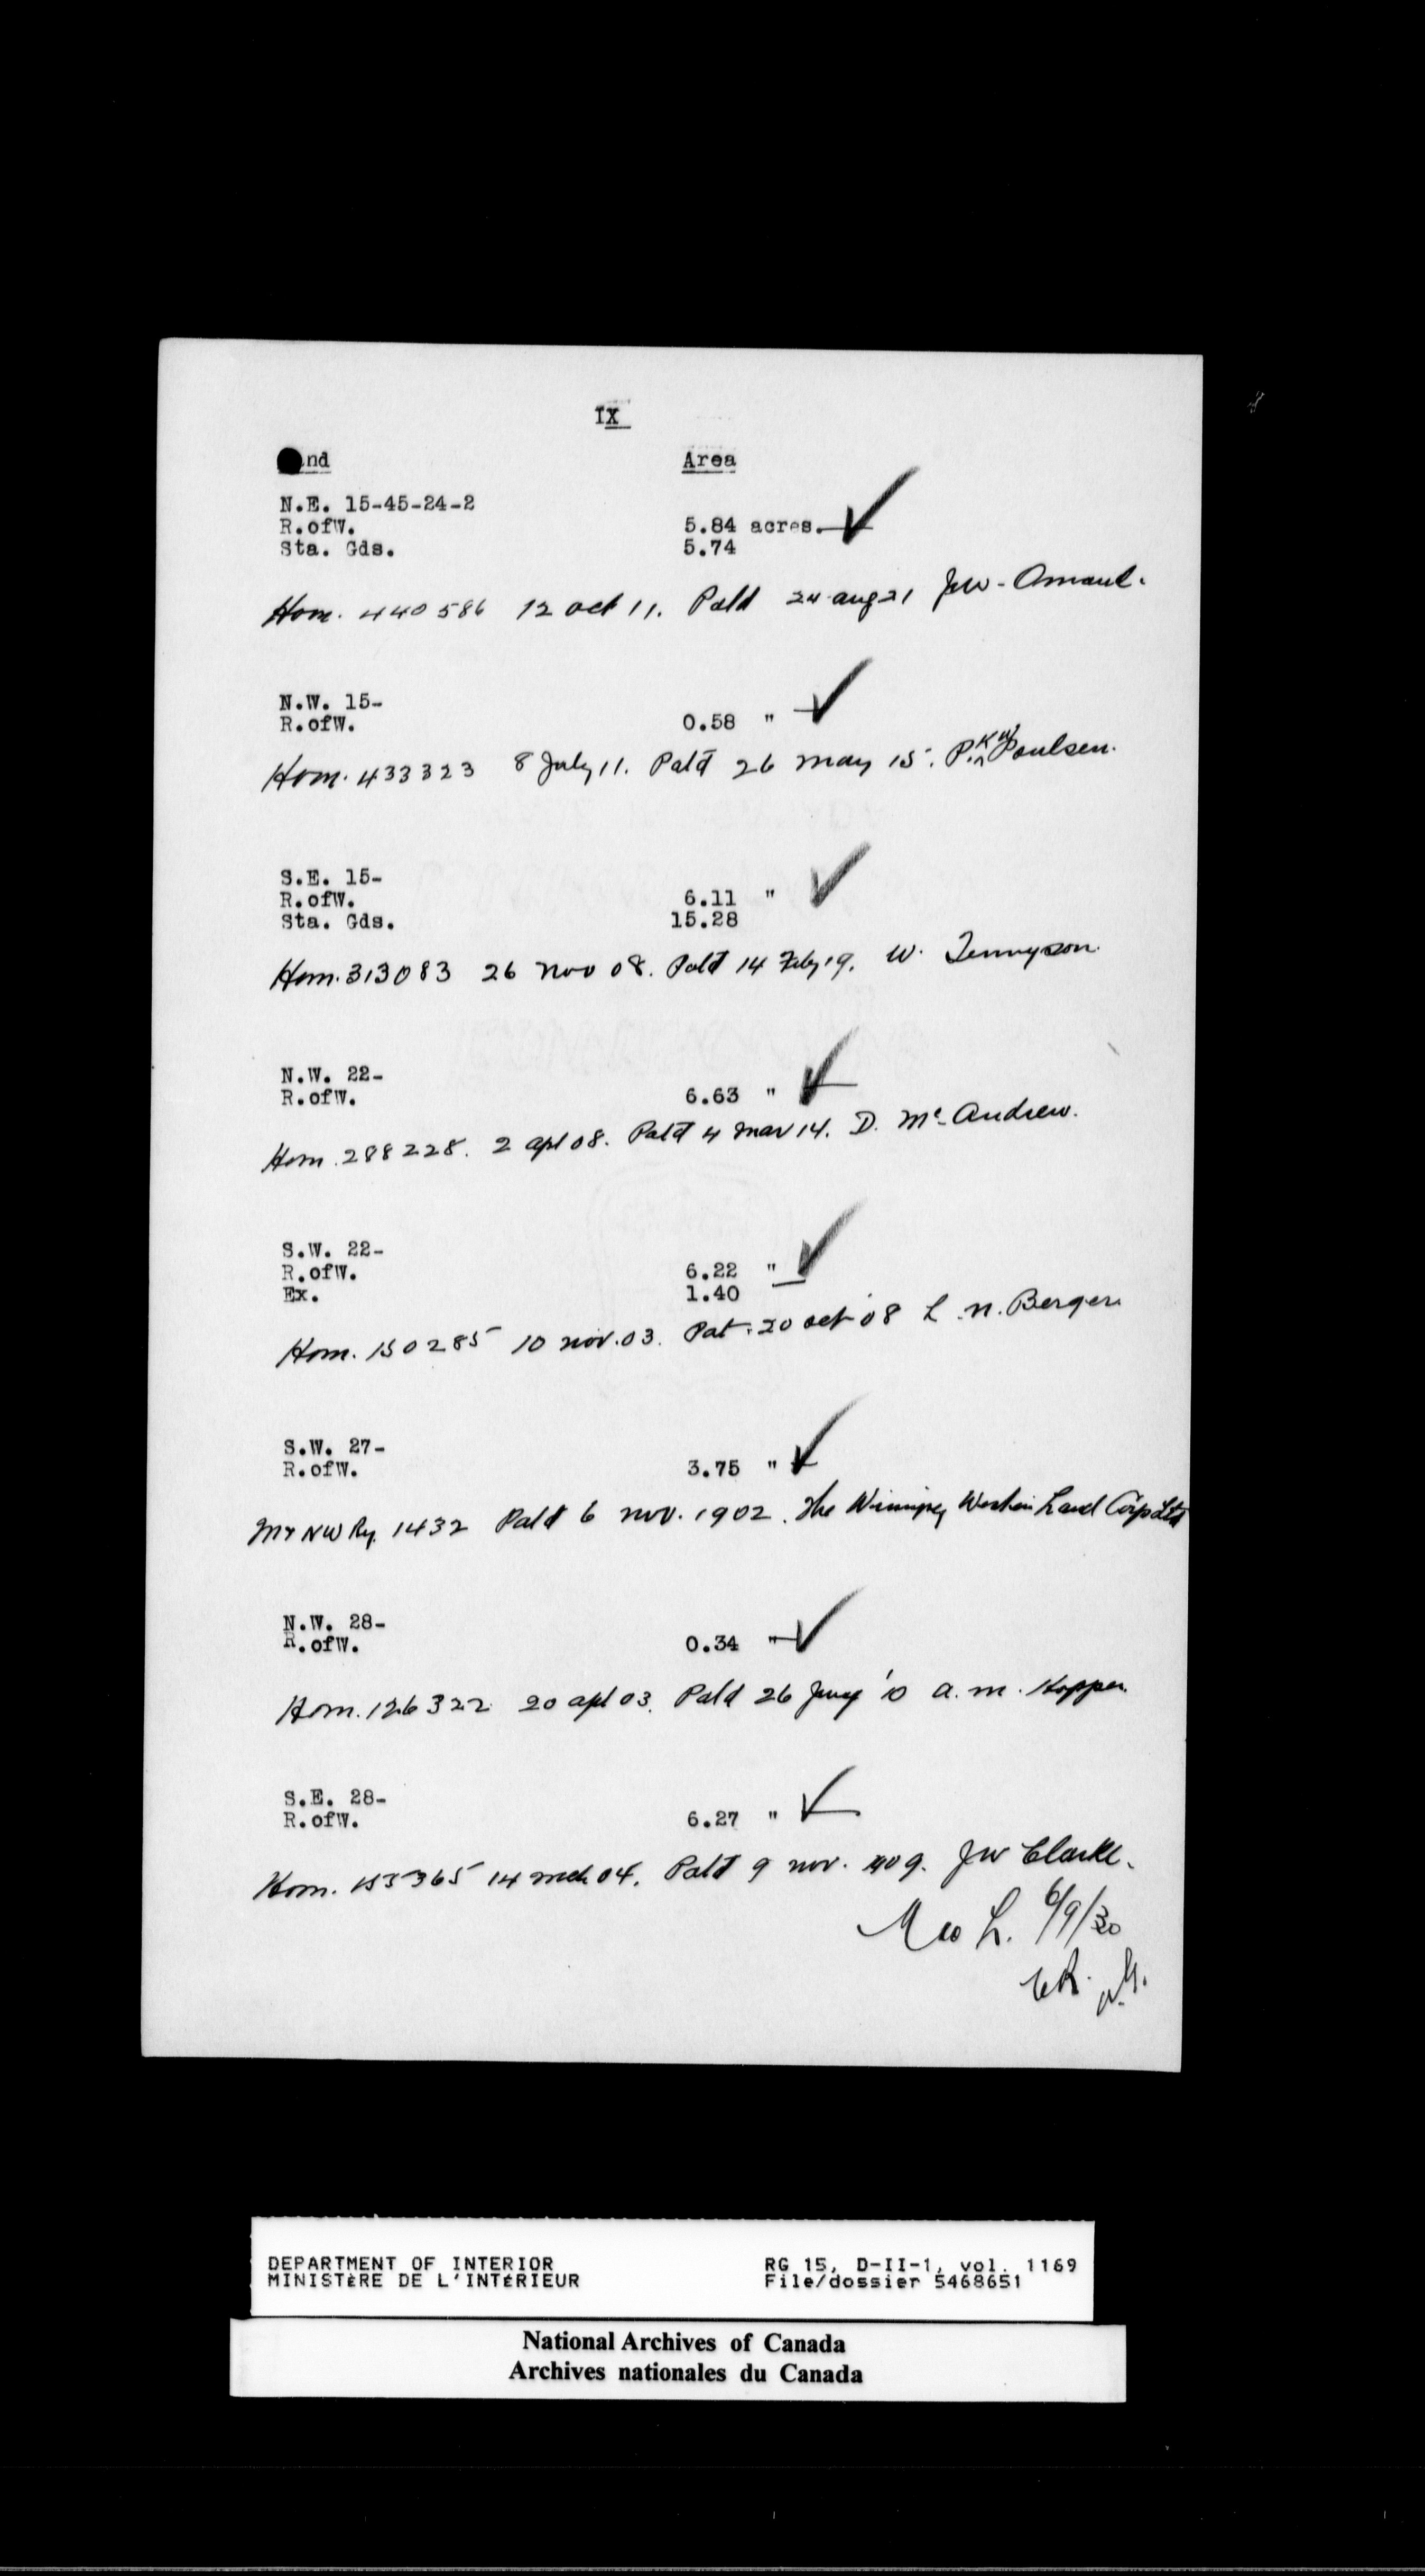 IX
nd Area
N.E. 15-45-24-2
R.ofW. 5.84 acres.
Sta. Gds. 5.74
Hom. 440586 12 Oct 11. Patd 24 Aug 21 JW.
N.W. 15-
R.ofW. 0.58 "
Hom. 433323 8 July 11. Patd 26 May 15. P. K W Poulsen.
S.E. 15-
R.ofW. 6.11 "
Sta. Gds. 15.28
Hom. 313083 26 Nov 08. Patd 14 Feby 19. W. Tennyson.
N.W. 22-
R.ofW. 6.63 "
Hom. 288228. 2 Apl 08. Patd 4 Mar 14. D. Mc Andrew.
S.W. 22-
R.ofW. 6.22 "
Ex. 1.40
Hom. 150285 10 Nov. 03. Pat. 20 Oct 08 L. N. Berger
S.W. 27-
R.ofW. 3.75 "
M & NW Ry. 1432 Patd 6 Nov. 1902. The Winnipeg Western Land Corp Ltd
N.W. 28-
R.ofW. 0.34 "
Hom. 126322 20 Apl 03. Patd 26 '10 A. M. Hopper.
S.E. 28-
R.ofW. 6.27 "
Hom. 153365 14 Mch 04. Patd 9 Nov. 1909. JW Clarke.
L. 6/9/30
DEPARTMENT OF INTERIOR RG 15, D-II-1, vol. 1169
MINISTÈRE DE L'INTÉRIEUR File/dossier 5468651
National Archives of Canada
Archives nationales du Canada